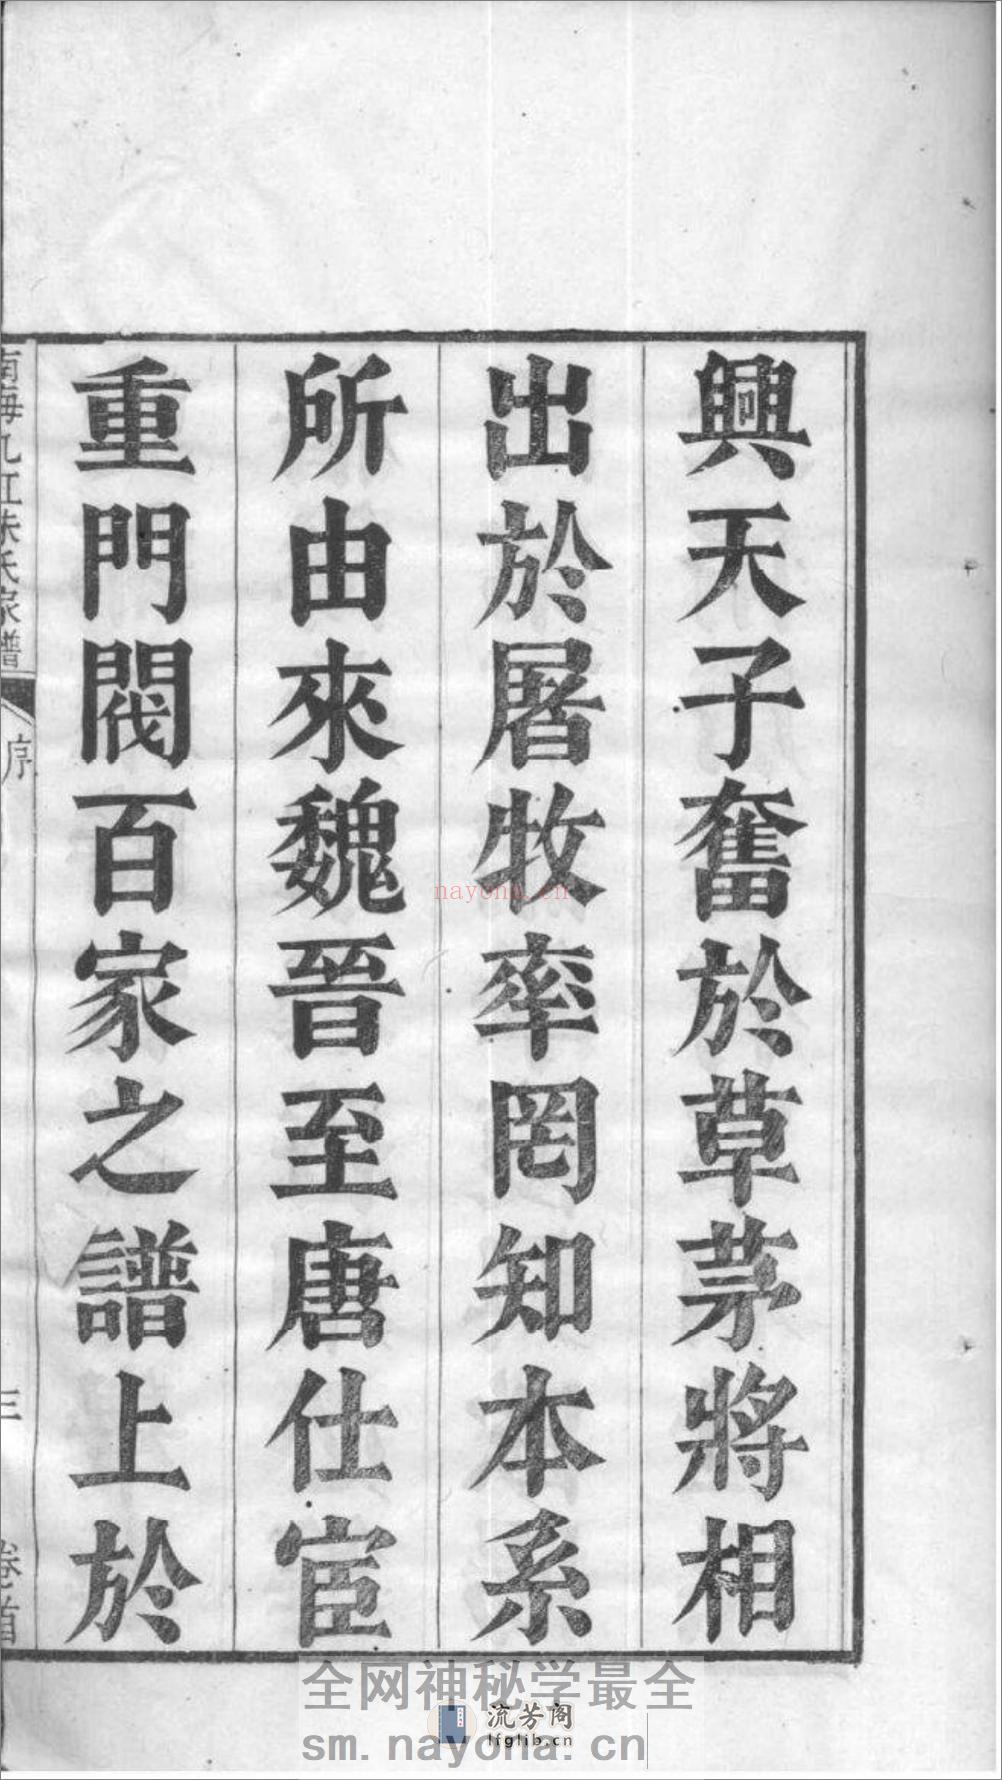 興天子奮於草茅將相
出於屠牧率罔知本系
所由來魏晉至唐仕宦
重門閥百家之譜上於
南海九江朱氏家譜
序
三
卷首
nayona.cn
全网神秘学最全
流芳阁
lfglib.cn
sm.nayona.cn